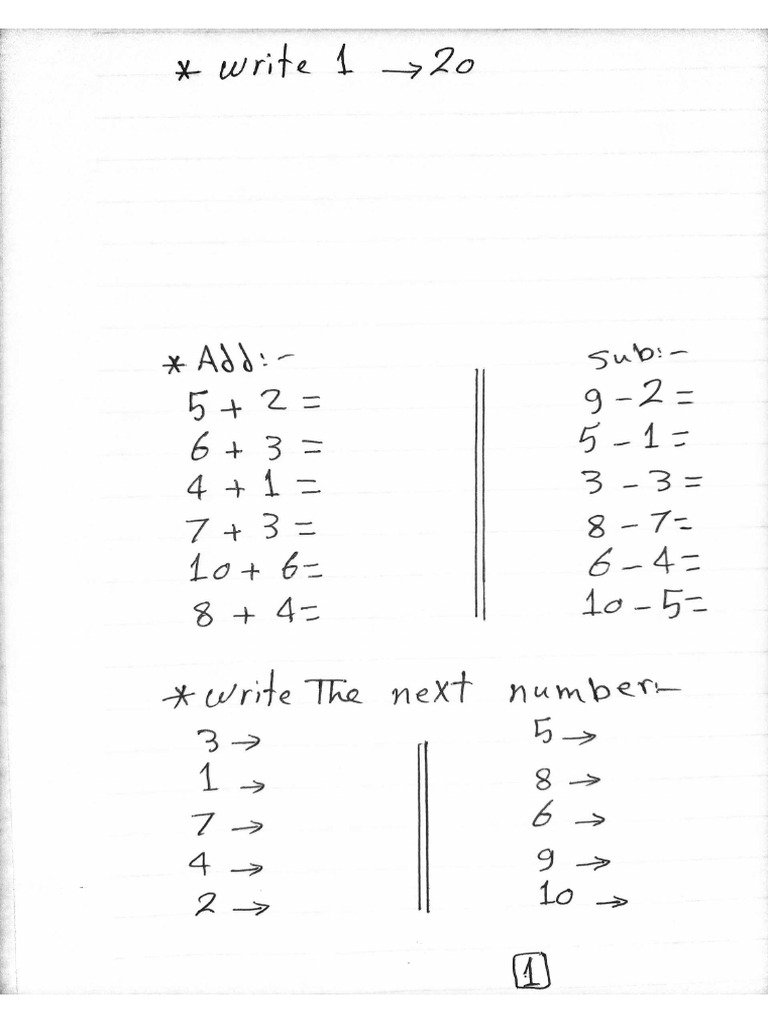 * write 1 → 20
* Add:-
5 + 2 =
6 + 3 =
4 + 1 =
7 + 3 =
10 + 6 =
8 + 4 =
Sub:-
9 - 2 =
5 - 1 =
3 - 3 =
8 - 7 =
6 - 4 =
10 - 5 =
* write The next number:-
3 →
1 →
7 →
4 →
2 →
5 →
8 →
6 →
9 →
10 →
1